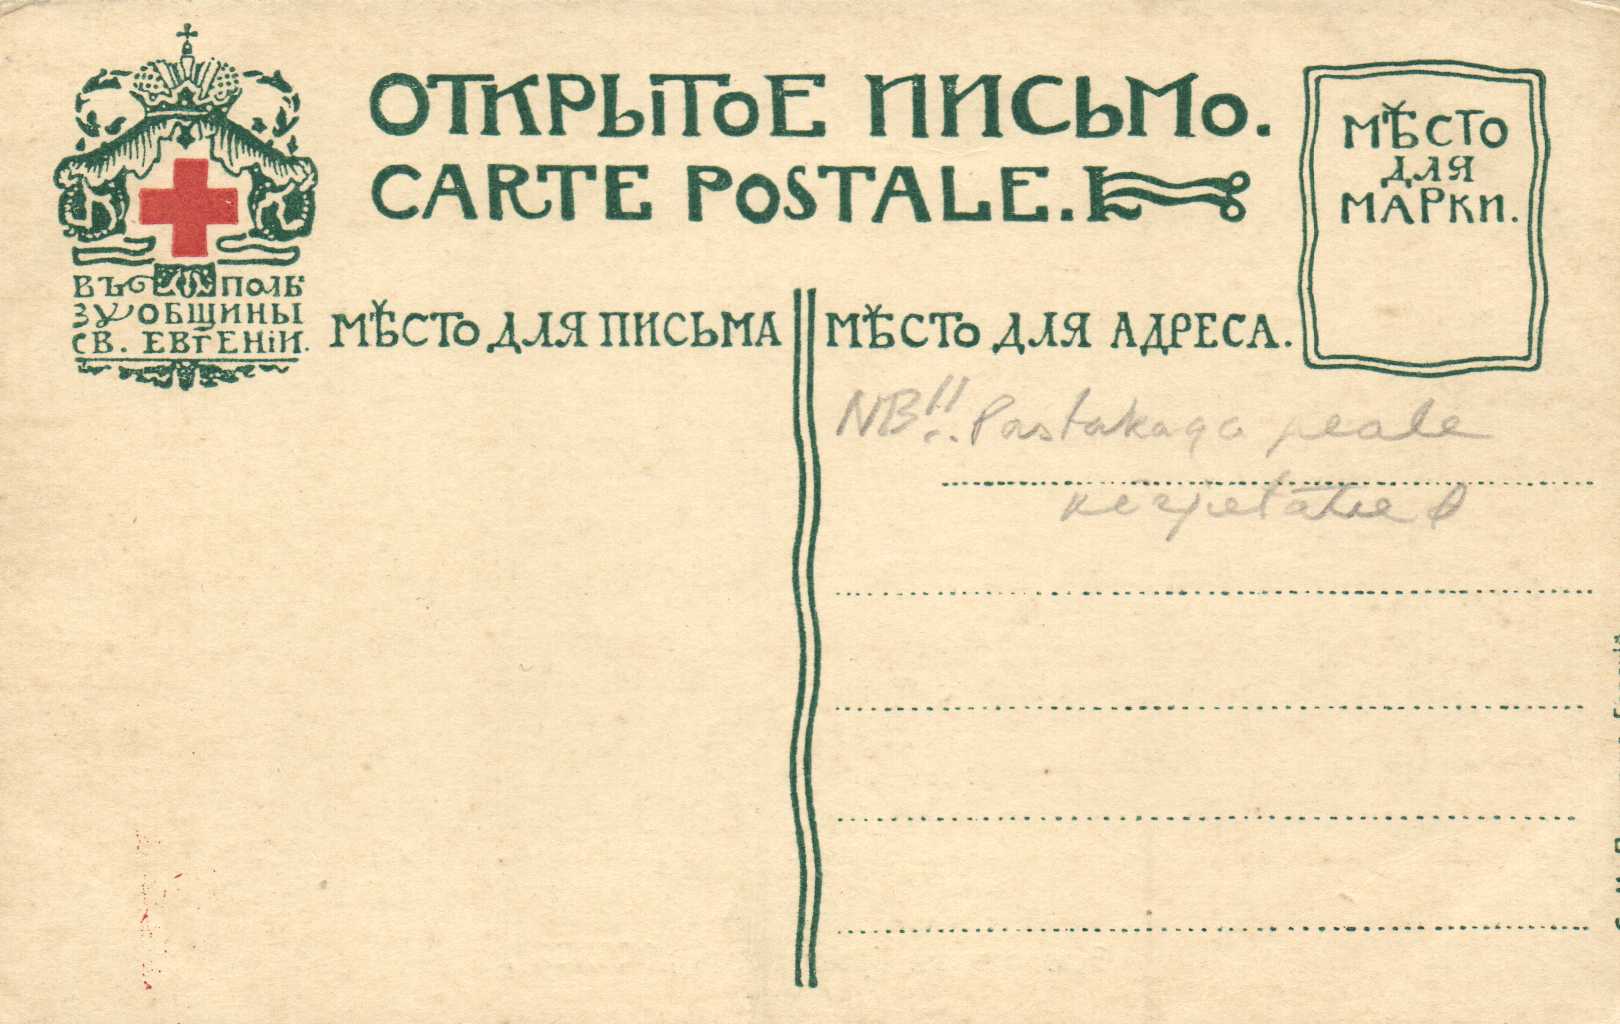 ОТКРЫТОЕ ПИСЬМО.
CARTE POSTALE.
МѢСТО
ДЛЯ
МАРКИ.
ВЪ ПОЛЬ
ЗУ ОБЩИНЫ
СВ. ЕВГЕНІИ.
МѢСТО ДЛЯ ПИСЬМА
МѢСТО ДЛЯ АДРЕСА.
NB!! Pastakaga peale